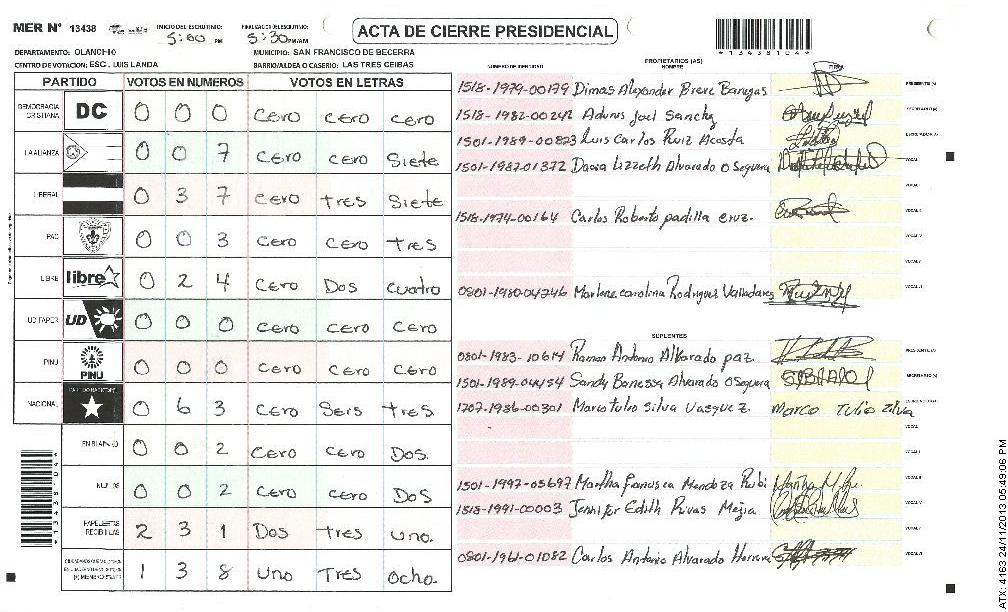 MER Nº 13438
INICIO DEL ESCRUTINIO: 5:00 PM
FINALIZACION DEL ESCRUTINIO: 5:30 PM/AM
ACTA DE CIERRE PRESIDENCIAL
*1343810 4*
DEPARTAMENTO: OLANCHO
MUNICIPIO: SAN FRANCISCO DE BECERRA
CENTRO DE VOTACION: ESC. LUIS LANDA
BARRIO/ALDEA O CASERIO: LAS TRES CEIBAS
PARTIDO VOTOS EN NUMEROS VOTOS EN LETRAS
DEMOCRACIA CRISTIANA DC 0 0 0 Cero cero cero
LA ALIANZA 0 0 7 Cero cero Siete
LIBERAL 0 3 7 Cero Tres Siete
PAC 0 0 3 Cero Cero Tres
LIBRE libre 0 2 4 Cero Dos cuatro
UD FAPER UD 0 0 0 Cero cero Cero
PINU PINU 0 0 0 Cero cero Cero
NACIONAL 0 6 3 Cero Seis Tres
EN BLANCO 0 0 2 Cero Cero Dos.
NULOS 0 0 2 Cero Cero Dos
PAPELETAS RECIBIDAS 2 3 1 Dos Tres uno.
1 3 8 Uno Tres ocho.
NUMERO DE IDENTIDAD
PROPIETARIOS (AS)
NOMBRE
FIRMA
1518-1979-00179 Dimas Alexander Breve Banegas PRESIDENTE (A)
1518-1982-00242 Adonis Joel Sanchez SECRETARIO (A)
1501-1989-00823 Luis Carlos Ruiz Acosta ESCRUTADOR (A)
1501-1987-01372 Dacia Lizzeth Alvarado Oseguera VOCAL I
1518-1974-00164 Carlos Roberto padilla cruz.
0801-1980-04246 Marlene carolina Rodriguez Valladares
SUPLENTES
0801-1983-10614 Ramon Antonio Alvarado paz. PRESIDENTE (A)
1501-1989-04454 Sandy Banessa Alvarado Oseguera SECRETARIO (A)
1707-1986-00301 Marco tulio Silva Vasquez. Marco Tulio Silva ESCRUTADOR (A)
1501-1997-03697 Martha Francisca Mendoza Rubi
1518-1991-00003 Jennifer Edith Rivas Mejia
0801-1961-01082 Carlos Antonio Alvarado Herrera
ATX: 4163 24/11/2013 05:49:06 PM